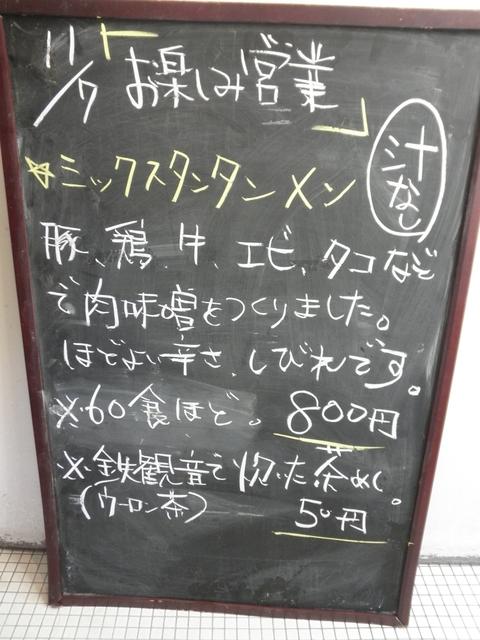 11/7「お楽しみ営業」
汁なし
☆ミックスタンタンメン
豚、鶏、牛、エビ、タコなど
で肉味噌をつくりました。
ほどよい辛さ、しびれです。
※60食ほど。 800円
※鉄観音で炊いた茶めし。
(ウーロン茶) 50円